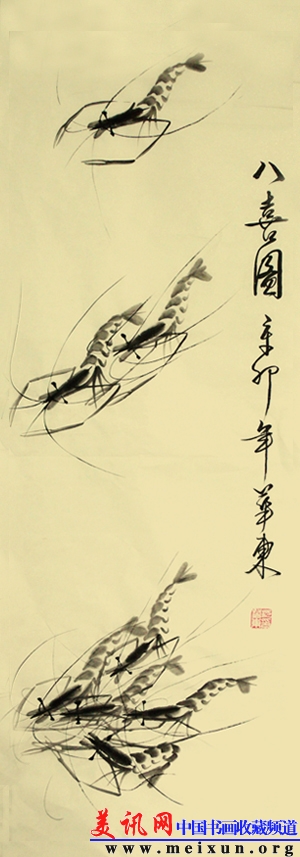 八喜图 辛卯年 华东
美讯网 中国书画收藏频道
www.meixun.org